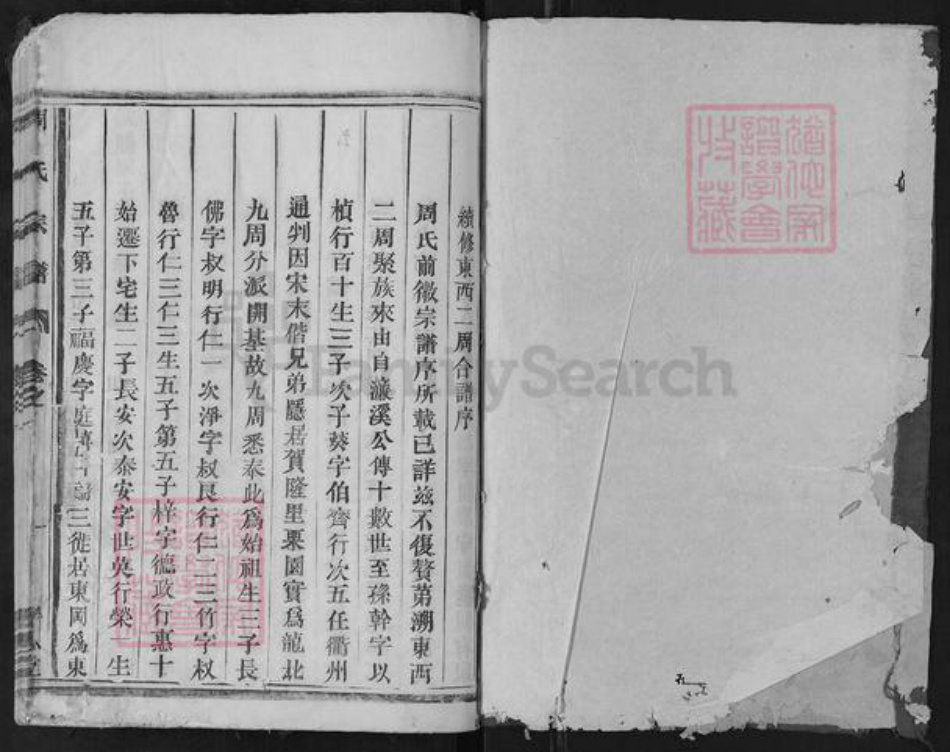 續修東西二周合譜序
周氏前徽宗譜序所載已詳茲不復贅第溯東西
二周聚族來由自濂溪公傳十數世至孫幹字以
楨行百十生三子次子葵字伯齊行次五任衢州
通判因宋末偕兄弟隱居賀隆里栗園實爲龍北
九周分派開基故九周悉奉此爲始祖生三子長
佛字叔明行仁一次淨字叔艮行仁二三竹字叔
魯行仁三仁三生五子第五子梓字德政行惠十
始遷下宅生二子長安次泰安字世英行榮一生
五子第三子福慶字庭 三徙居東岡爲東
周氏宗譜 卷之一
譜學會
收藏
FamilySearch